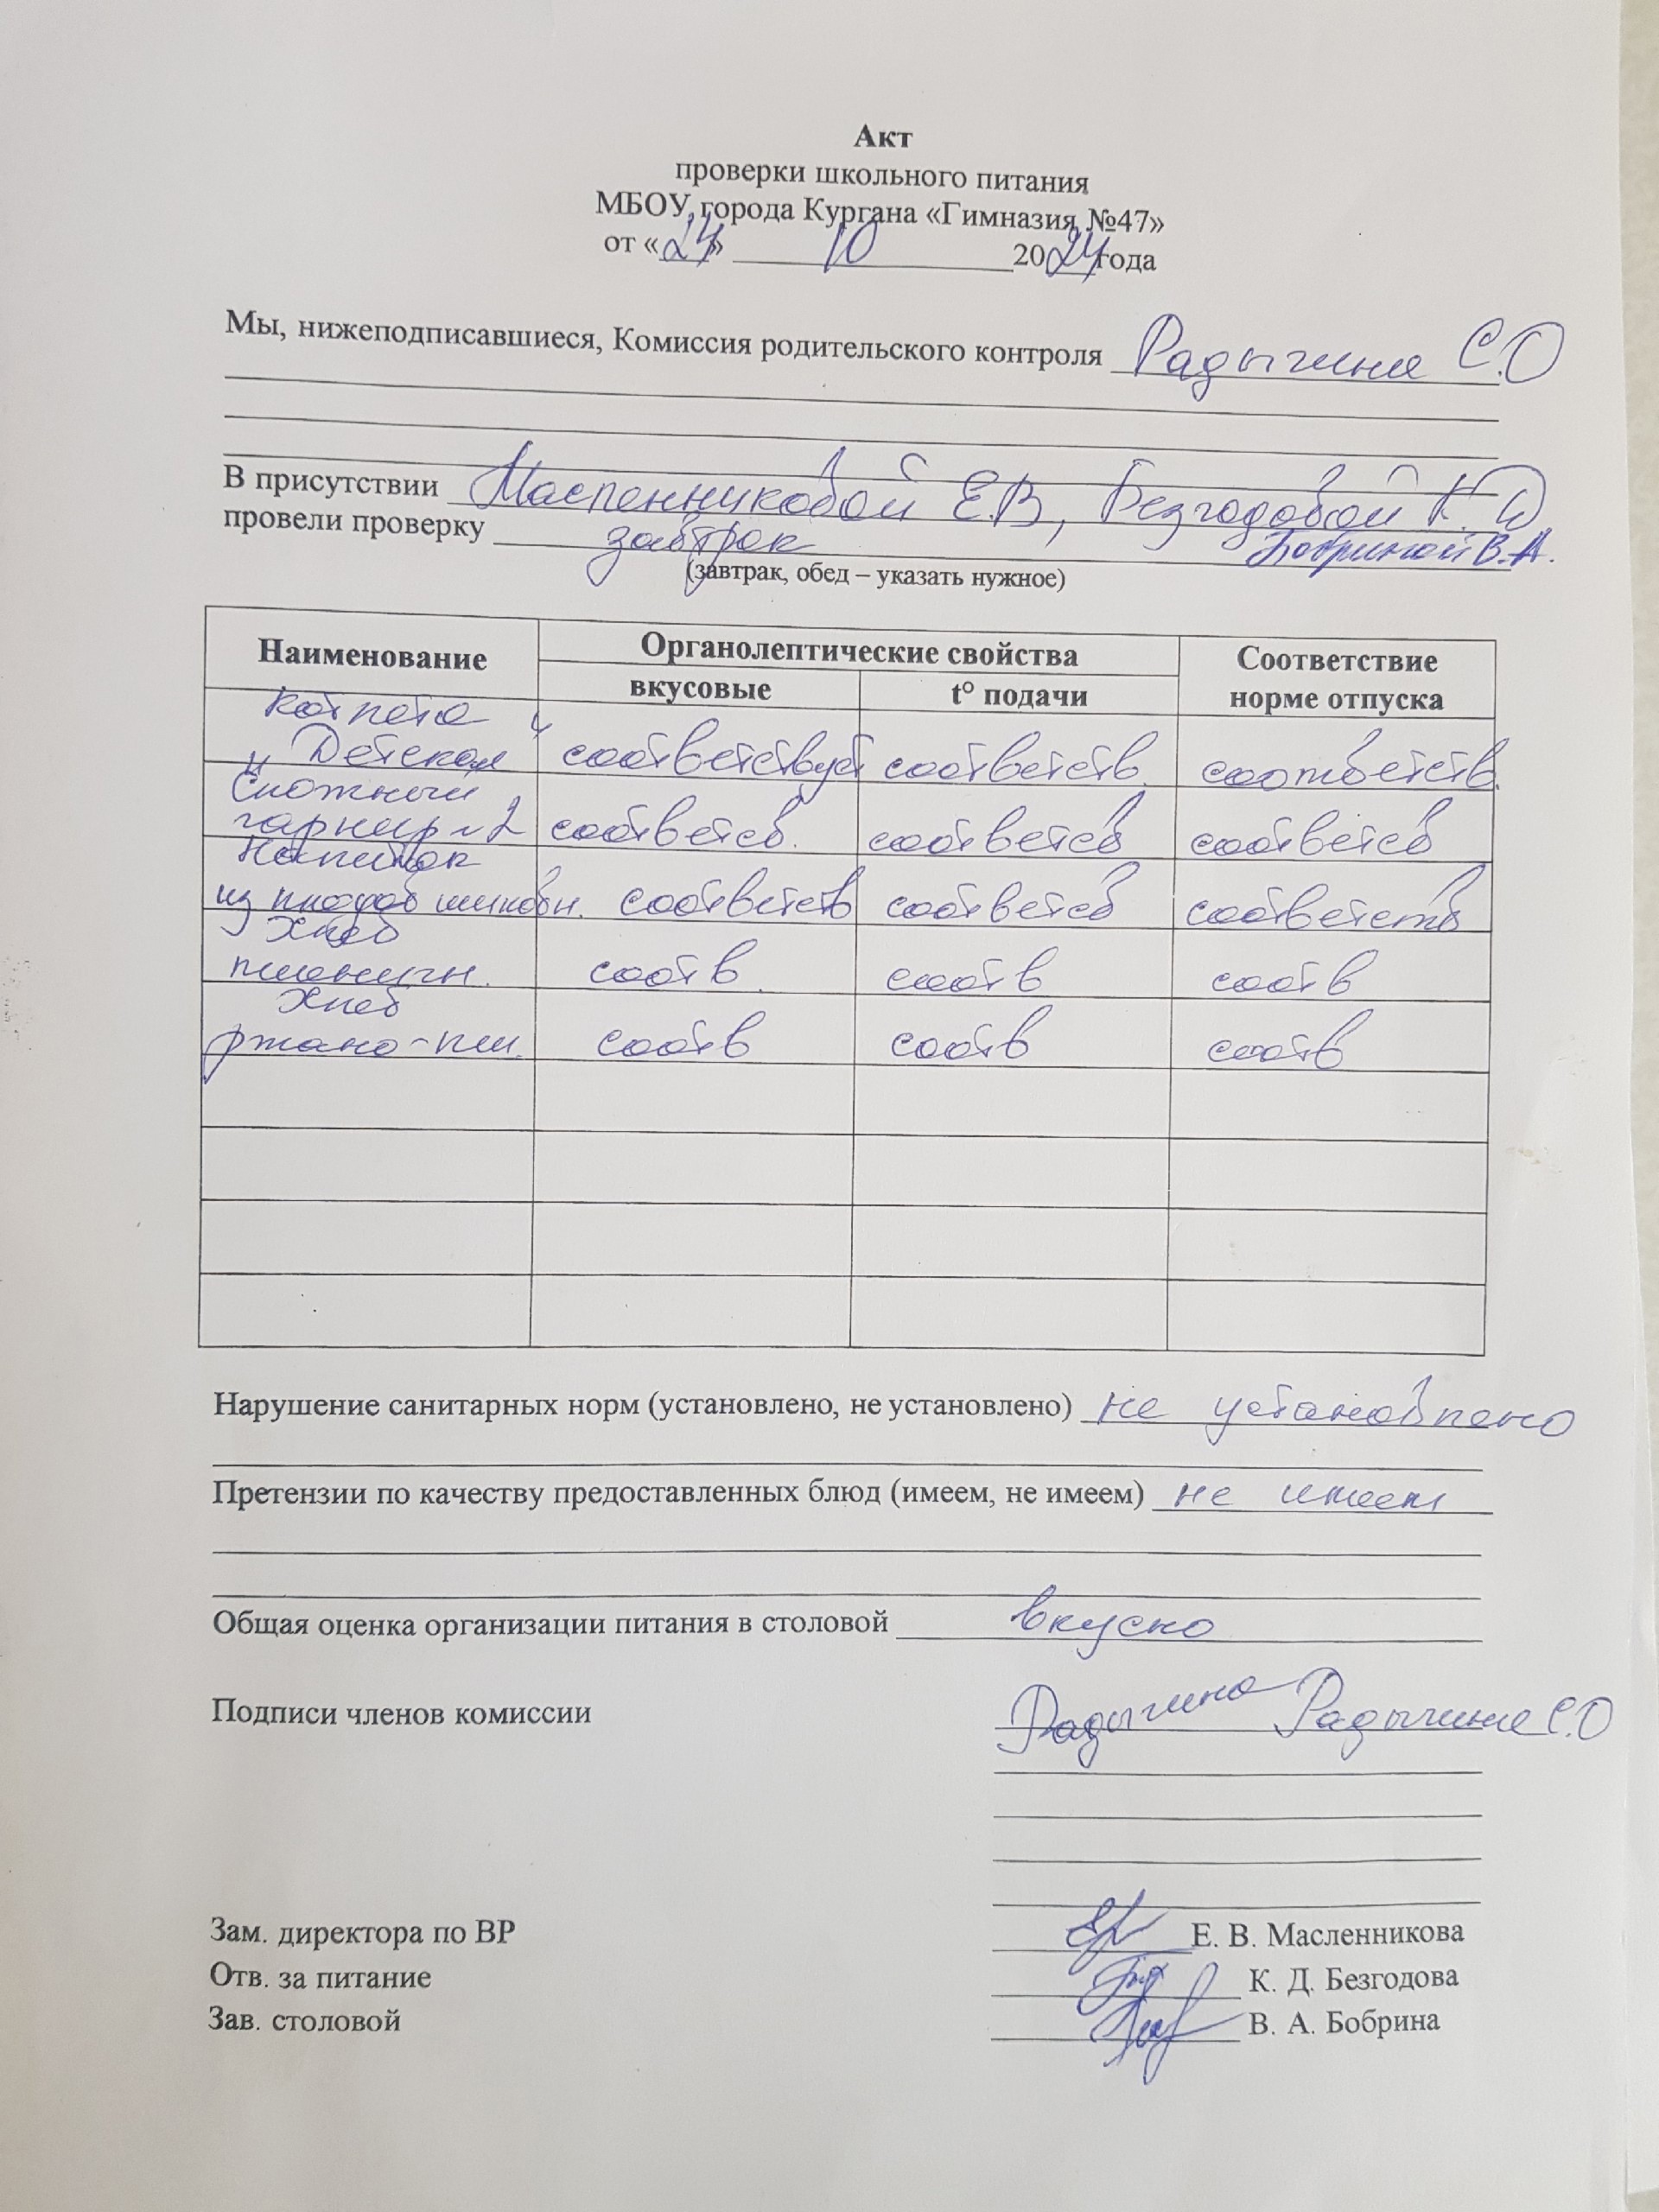 Акт
проверки школьного питания
МБОУ города Кургана «Гимназия №47»
от «24» 10 2024 года
Мы, нижеподписавшиеся, Комиссия родительского контроля Радыгина С.О
В присутствии Масленниковой Е.В, Безгодовой К.Д,
провели проверку завтрак Бобриной В.А.
(завтрак, обед – указать нужное)
Наименование Органолептические свойства Соответствие норме отпуска
вкусовые t° подачи
Котлета "Детская" соответствует соответств. соответств.
Сложный гарнир №2 соответсв. соответсв соответсв
Напиток из плодов шиповн. соответств соответсв соответств
Хлеб пшеничн. соотв. соотв соотв
Хлеб ржано-пш. соотв соотв соотв
Нарушение санитарных норм (установлено, не установлено) не установлено
Претензии по качеству предоставленных блюд (имеем, не имеем) не имеем
Общая оценка организации питания в столовой вкусно
Подписи членов комиссии Радыгина Радыгина С.О
Зам. директора по ВР Е. В. Масленникова
Отв. за питание К. Д. Безгодова
Зав. столовой В. А. Бобрина